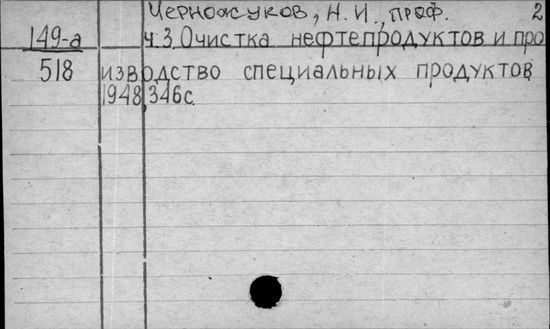 Черножуков, Н. И., проф. 2
149-а ч.3. Очистка нефтепродуктов и про
518 изводство специальных продуктов
1948, 346с.